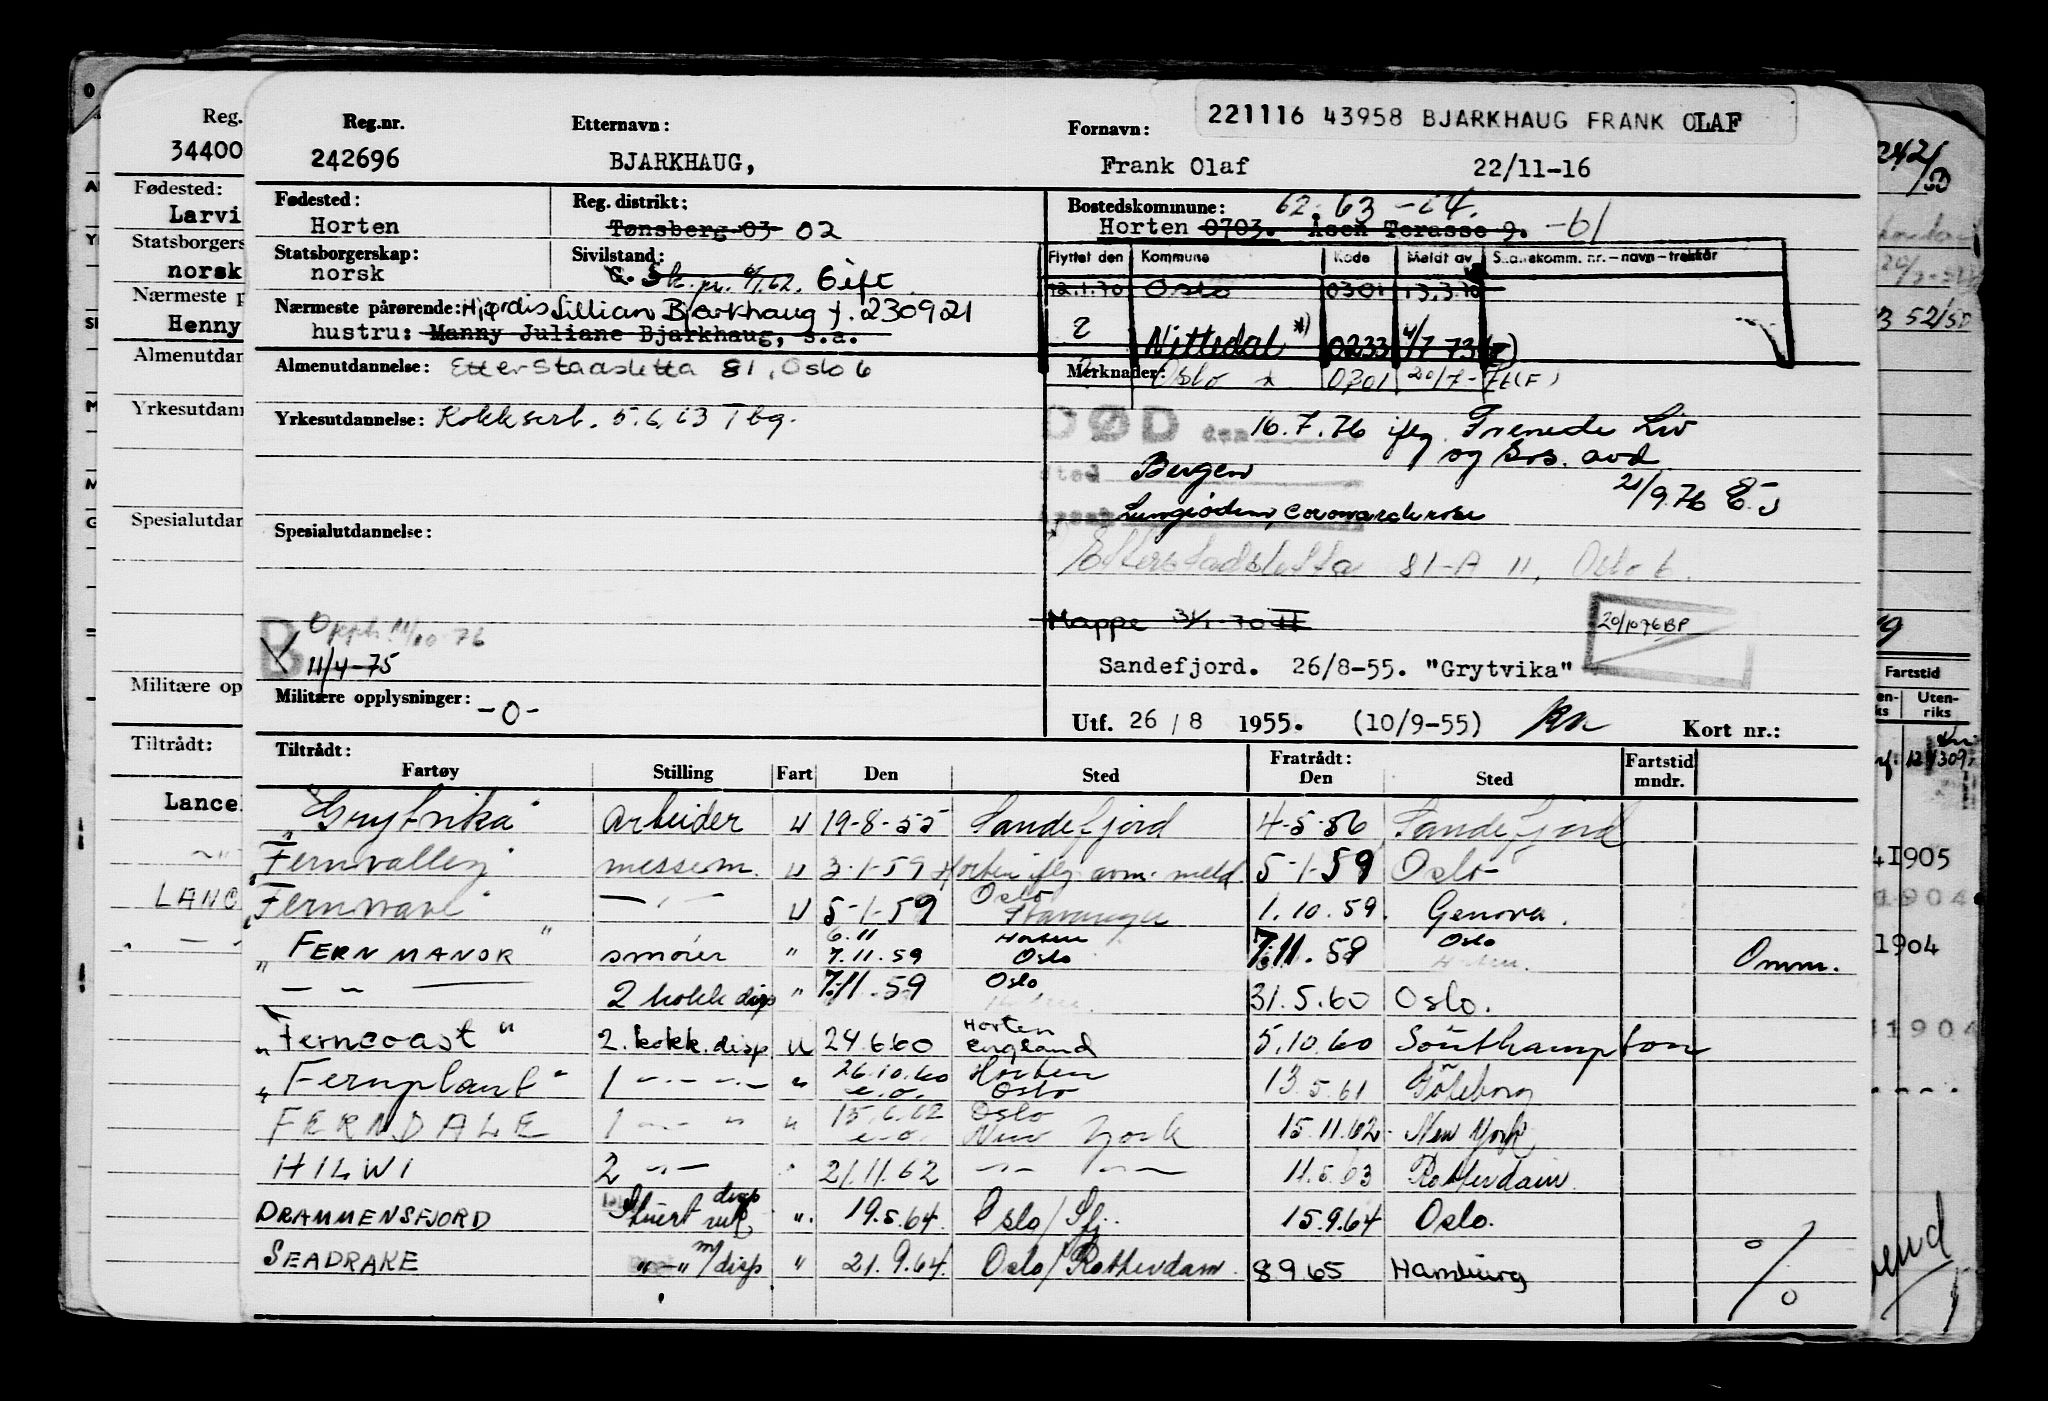 221116 43958 BJARKHAUG FRANK OLAF
Reg.nr. Etternavn: Fornavn:
242696 BJARKHAUG, Frank Olaf 22/11-16
Fødested: Reg. distrikt: Bostedskommune: 62. 63 -64.
Horten Tønsberg 03 02 Horten 0703. Åsen Terasse 9. -61
Statsborgerskap: Sivilstand:
norsk G. Gift
Flyttet den Kommune Kode Meldt av
12.1.70 Oslo 0301 13.3.70
Nærmeste pårørende: Hjørdis Lillian Bjarkhaug f. 230921
hustru: Manny Juliane Bjarkhaug, s.a.
2 Nittedal *) 0233 4/7 73
Almenutdannelse: Etterstadsletta 81, Oslo 6
Merknader: Oslo 0301 20/7-
Yrkesutdannelse: Kokksert. 5.6.63 Tbg.
DØD den 16.7.76 iflg. Trenede Liv
og Sos. avd.
sted Bergen
21/9.76
Lungeødem,
Spesialutdannelse:
Etterstadsletta 81-A 11, Oslo 6.
B Opph. 11/10 76
11/4-75
Mappe 3/1-70
20/10 76 BP
Sandefjord. 26/8-55. "Grytvika"
Militære opplysninger: -0-
Utf. 26 / 8 1955. (10/9-55) Kort nr.:
Tiltrådt: Fratrådt:
Fartøy Stilling Fart Den Sted Den Sted Fartstid mndr.
"Grytvika" arbeider U 19-8-55 Sandefjord 4-5-56 Sandefjord
"Fernvalley" messem. U 3-1-59 Horten iflg avm. meld 5-1-59 Oslo
"Fernwave" — " — U 5-1-59 Oslo Stavanger 1.10.59. Genova.
"FERNMANOR" smører " 6.11 Horten
7.11.59 Oslo 7.11.59 Oslo Omm.
— " — 2 kokk disp " 7.11.59 Oslo 31.5.60 Oslo.
"Ferncoast" 2. kokk. disp U 24.6.60 Horten England 5.10.60 Southampton
"Fernplant" 1 — " — " — " 26.10.60 Horten
e.o. Oslo 13.5.61 Göteborg
FERNDALE 1 — " " 15.6.62 Oslo
e.o. New York 15.11.62 New York
HILWI 2 — " — 21.11.62 — " — — " — 11.5.63 Rotterdam.
DRAMMENSFJORD Stuert disp ". 19.5.64. Oslo/Sfj. 15.9.64 Oslo.
SEADRAKE " — " m/disp " 21.9.64. Oslo/Rotterdam. 8 9 65 Hamburg
Reg.
34400
Fødested:
Larvi
Statsborgers
norsk
Nærmeste p
Henny
Almenutdan
Yrkesutdann
Spesialutdan
Militære op
Tiltrådt:
Lance
LANC
Fartstid
Uten-
riks
1905
1904
1904
1904